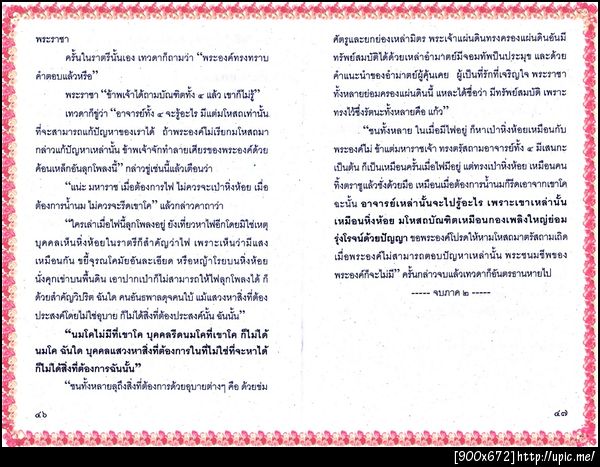 พระราชา
ครั้นในราตรีนั้นเอง เทวดาก็ถามว่า “พระองค์ทรงทราบ
คำตอบแล้วหรือ”
พระราชา “ข้าพเจ้าได้ถามบัณฑิตทั้ง ๔ แล้ว เขาก็ไม่รู้”
เทวดาก็ขู่ว่า “อาจารย์ทั้ง ๔ จะรู้อะไร มีแต่มโหสถเท่านั้น
ที่จะสามารถแก้ปัญหาของเราได้ ถ้าพระองค์ไม่เรียกมโหสถมา
กล่าวแก้ปัญหาเหล่านั้น ข้าพเจ้าจักทำลายเศียรของพระองค์ด้วย
ค้อนเหล็กอันลุกโพลงนี้” กล่าวขู่เช่นนี้แล้วเตือนว่า
“แน่ะ มหาราช เมื่อต้องการไฟ ไม่ควรจะเป่าหิ่งห้อย เมื่อ
ต้องการน้ำนม ไม่ควรจะรีดเขาโค” แล้วกล่าวคาถาว่า
“ใครเล่าเมื่อไฟมีลุกโพลงอยู่ ยังเที่ยวหาไฟอีกโดยมิใช่เหตุ
บุคคลเห็นหิ่งห้อยในราตรีก็สำคัญว่าไฟ เพราะเห็นว่ามีแสง
เหมือนกัน ขยี้จุรณโคมัยอันละเอียด หรือหญ้าโรยบนหิ่งห้อย
นั่งคุกเข่าบนพื้นดิน เอาปากเป่าก็ไม่สามารถให้ไฟลุกโพลงได้ ก็
ด้วยสำคัญวิปริต ฉันใด คนอันธพาลดุจคนใบ้ แม้แสวงหาสิ่งที่ต้อง
ประสงค์โดยไม่ใช่อุบาย ก็ไม่ได้สิ่งที่ต้องประสงค์นั้น ฉันนั้น”
“นมโคไม่มีที่เขาโค บุคคลรีดนมโคที่เขาโค ก็ไม่ได้
นมโค ฉันใด บุคคลแสวงหาสิ่งที่ต้องการในที่ไม่ใช่ที่จะหาได้
ก็ไม่ได้สิ่งที่ต้องการฉันนั้น”
“ชนทั้งหลายลุถึงสิ่งที่ต้องการด้วยอุบายต่างๆ คือ ด้วยข่ม
๔๖
ศัตรูและยกย่องเหล่ามิตร พระเจ้าแผ่นดินทรงครองแผ่นดินอันมี
ทรัพย์สมบัติได้ด้วยเหล่าอำมาตย์มีจอมทัพเป็นประมุข และด้วย
คำแนะนำของอำมาตย์ผู้คุ้นเคย ผู้เป็นที่รักที่เจริญใจ พระราชา
ทั้งหลายย่อมครองแผ่นดินนี้ แหละได้ชื่อว่า มีทรัพย์สมบัติ เพราะ
ทรงไว้ซึ่งรัตนะทั้งหลายคือ แก้ว”
“ชนทั้งหลาย ในเมื่อมีไฟอยู่ ก็หาเป่าหิ่งห้อยเหมือนกับ
พระองค์ไม่ ข้าแต่มหาราชเจ้า ทรงตรัสถามอาจารย์ทั้ง ๔ มีเสนกะ
เป็นต้น ก็เป็นเหมือนครั้นเมื่อไฟมีอยู่ แต่ทรงเป่าหิ่งห้อย เหมือนคน
ทิ้งตราชูแล้วชั่งด้วยมือ เหมือนเมื่อต้องการน้ำนมก็รีดเอาจากเขาโค
ฉะนั้น อาจารย์เหล่านั้นจะไปรู้อะไร เพราะเขาเหล่านั้น
เหมือนหิ่งห้อย มโหสถบัณฑิตเหมือนกองเพลิงใหญ่ย่อม
รุ่งโรจน์ด้วยปัญญา ขอพระองค์โปรดให้หามโหสถมาตรัสถามเถิด
เมื่อพระองค์ไม่สามารถตอบปัญหาเหล่านั้น พระชนมชีพของ
พระองค์ก็จะไม่มี” ครั้นกล่าวจบแล้วเทวดาก็อันตรธานหายไป
----- จบภาค ๒ -----
๔๗
[900x672]http://upic.me/